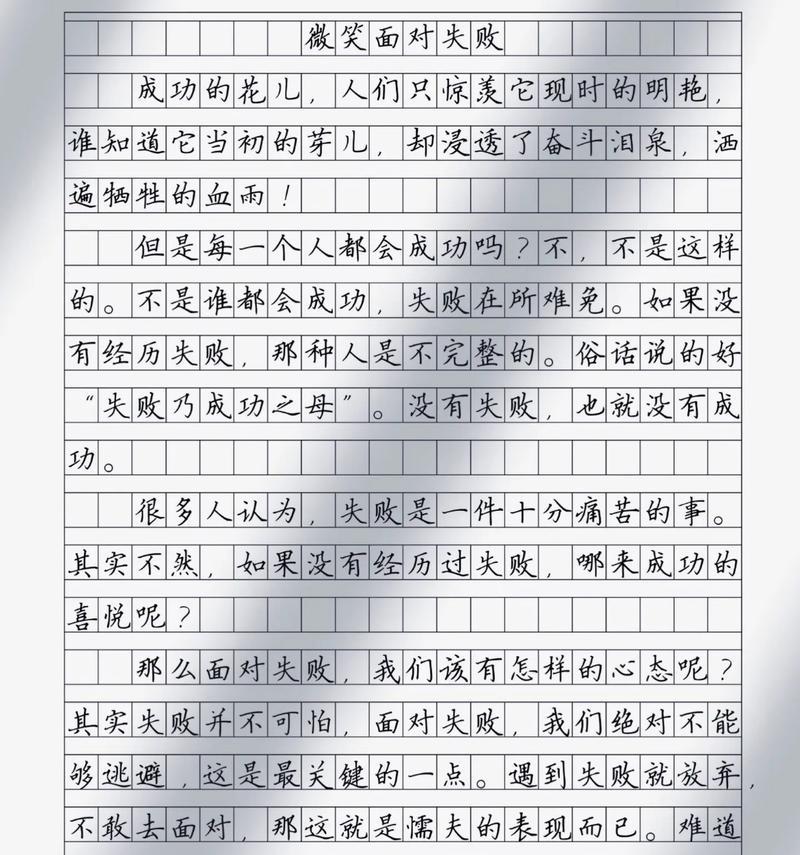 微笑面对失败
成功的花儿，人们只惊羡它现时的明艳，
谁知道它当初的芽儿，却浸透了奋斗泪泉，洒
遍牺牲的血雨！
但是每一个人都会成功吗？不，不是这样
的。不是谁都会成功，失败在所难免。如果没
有经历失败，那种人是不完整的。俗话说的好
“失败乃成功之母”。没有失败，也就没有成
功。
很多人认为，失败是一件十分痛苦的事。
其实不然，如果没有经历过失败，哪来成功的
喜悦呢？
那么面对失败，我们该有怎样的心态呢？
其实失败并不可怕，面对失败，我们绝对不能
够逃避，这是最关键的一点。遇到失败就放弃，
不敢去面对，那这就是懦夫的表现而已。难道